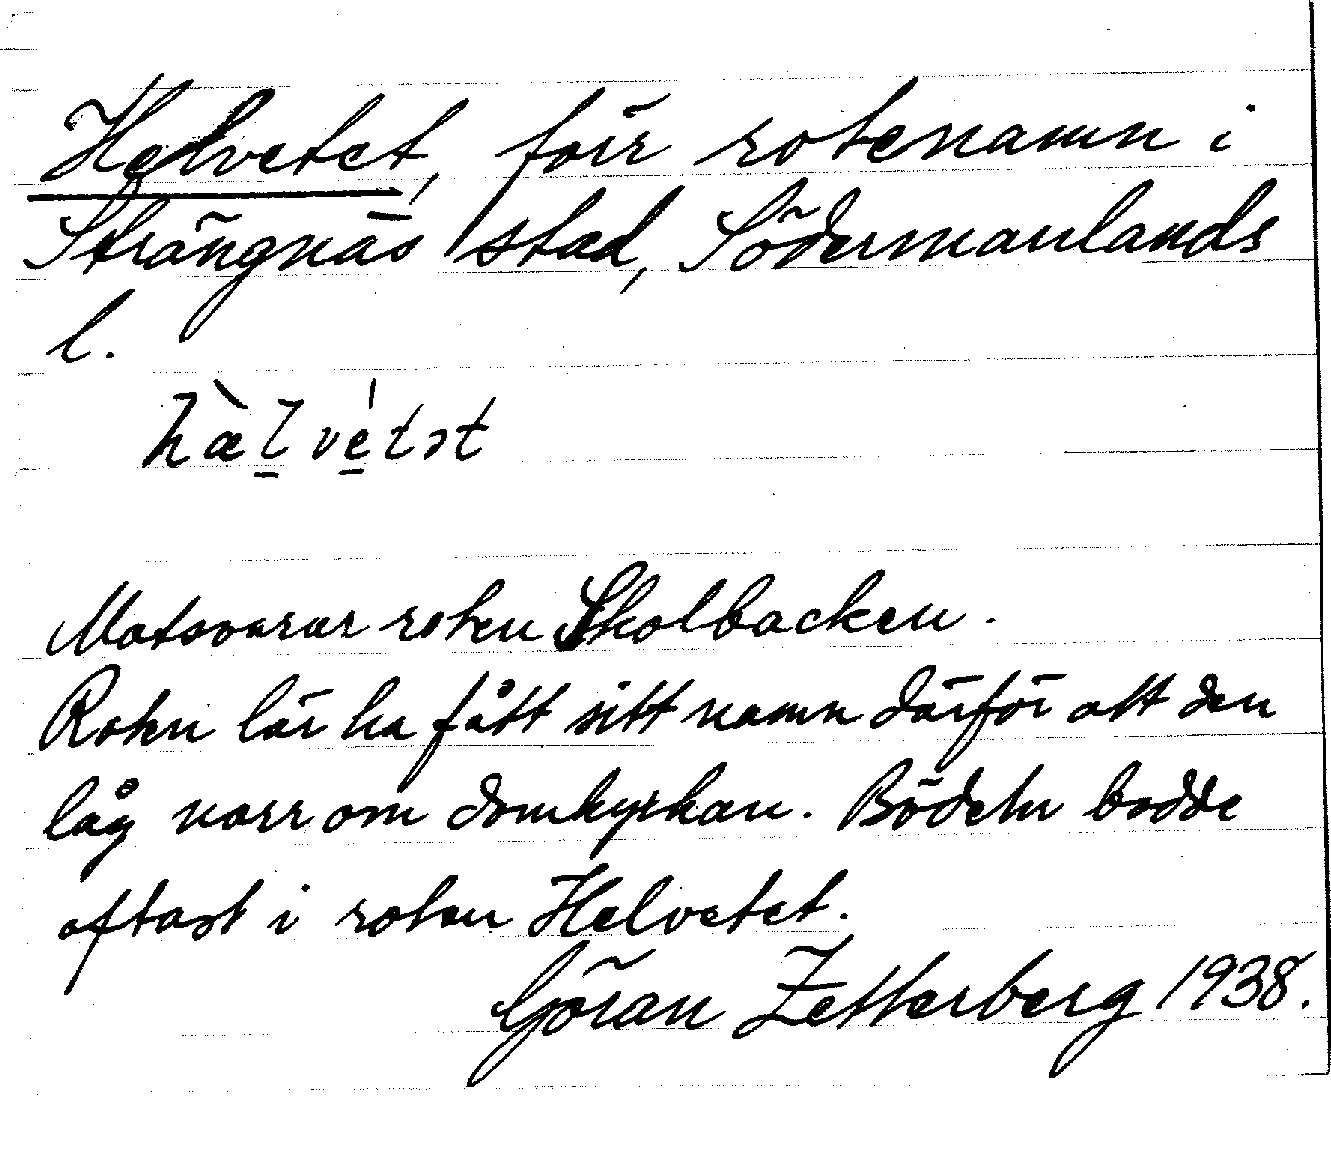 Helvetet, förr rotenamn i
Strängnäs stad, Södermanlands
l.
hæ̀l̠vé̠tət
Motsvarar roten Skolbacken.
Roten lär ha fått sitt namn därför att den
låg norr om domkyrkan. Bödeln bodde
oftast i roten Helvetet.
Göran Zetterberg 1938.